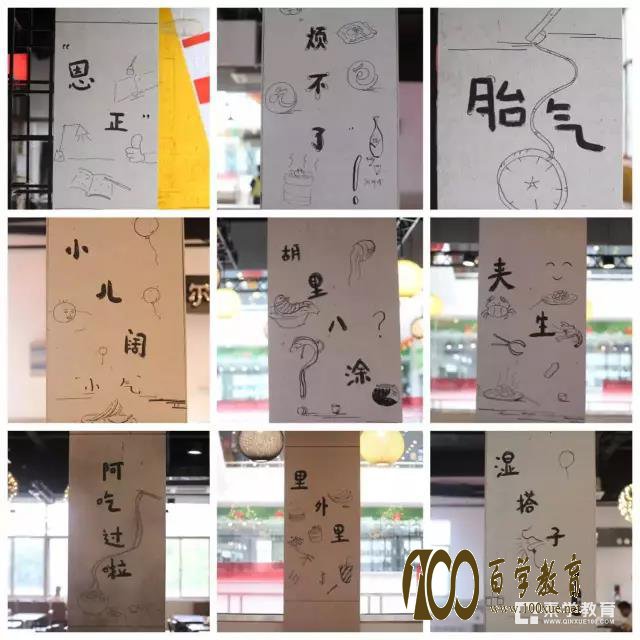 "恩正"
烦不了
胎气
小儿阔
小气
胡里八涂
?
夹生
阿吃过啦
里外里
湿搭子
100百学教育
www.100xue.net
学教育
WWW.QINXUE100.COM